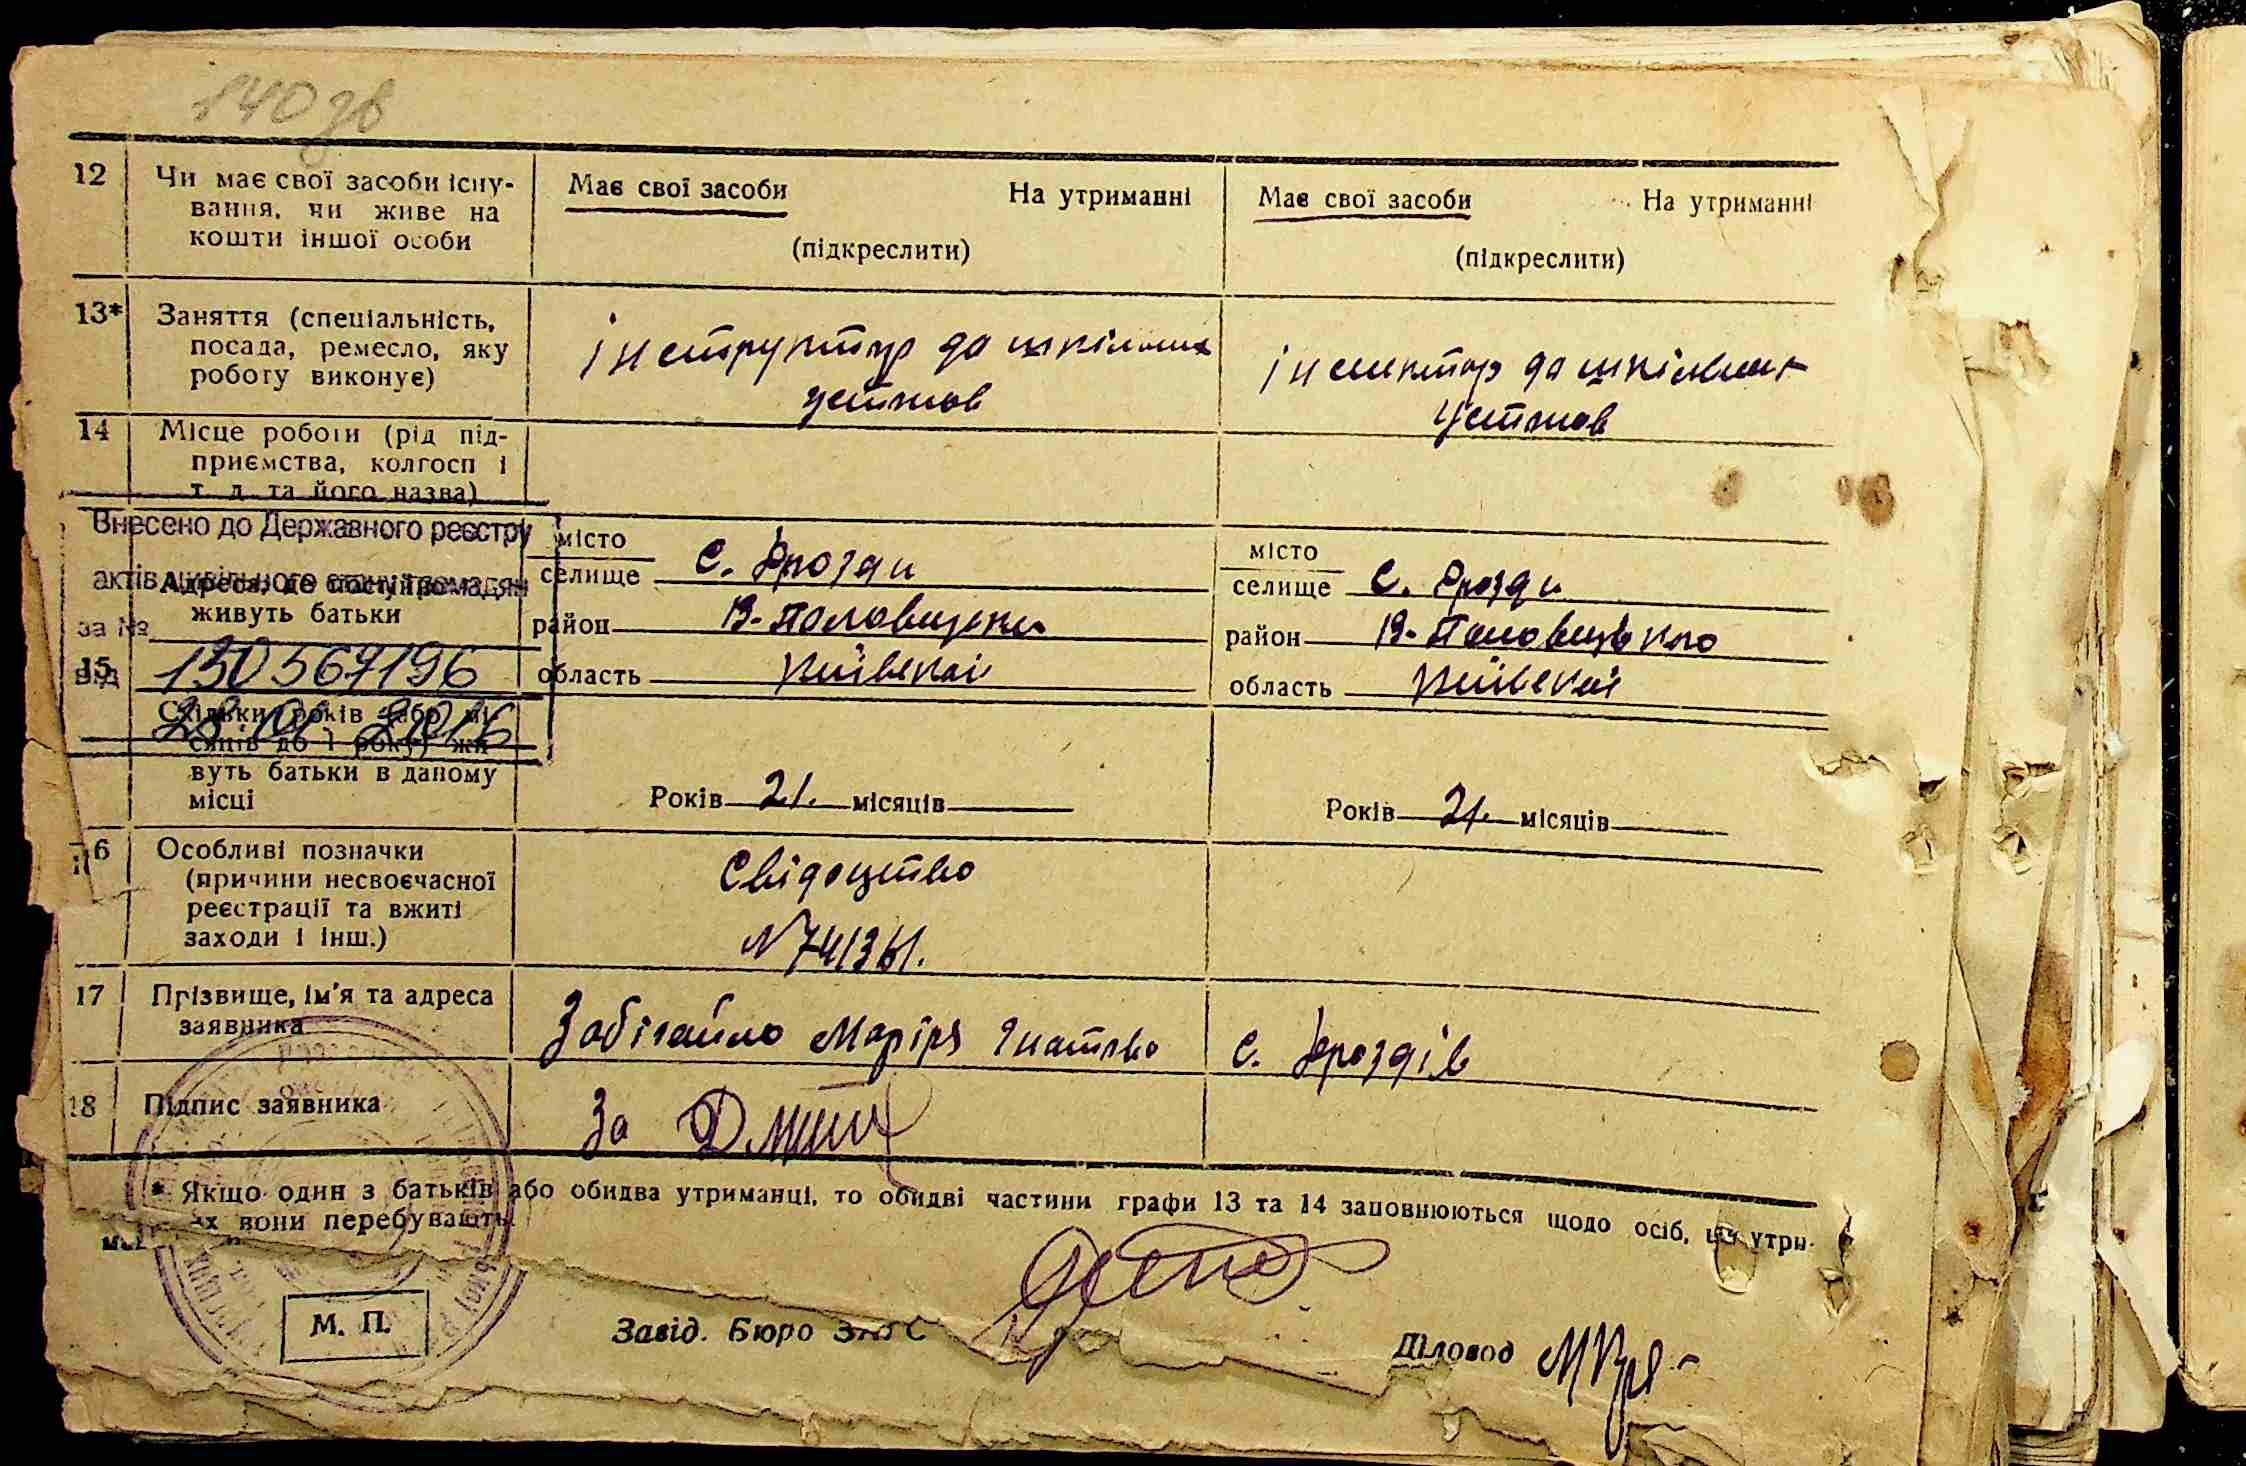 140 зв
12
Чи має свої засоби існу-
вання, чи живе на
кошти іншої особи
Має свої засоби На утриманні
(підкреслити)
Має свої засоби На утриманні
(підкреслити)
13*
Заняття (спеціальність,
посада, ремесло, яку
роботу виконує)
інструктор до шкільних
установ
до шкільних
установ
14
Місце роботи (рід під-
приємства, колгосп і
т. д. та його назва)
Внесено до Державного реєстру
актів цивільного стану громадян
за №
від
150567196
2016
15
Адреса, де постійно
живуть батьки
місто
селище с. Дрозди
район В-Половецьки
область Київської
місто
селище с. Дрозди
район В-Половецького
область Київської
Скільки років (або мі-
сяців до 1 року) жи-
вуть батьки в даному
місці
Років 21. місяців
Років 21. місяців
16
Особливі позначки
(причини несвоєчасної
реєстрації та вжиті
заходи і інш.)
Свідоцтво
N 741361.
17
Прізвище, ім'я та адреса
заявника
Забігайло Марія Гнатівна
с. Дроздів
18
Підпис заявника
За
* Якщо один з батьків або обидва утриманці, то обидві частини графи 13 та 14 заповнюються щодо осіб, що утри-
ях вони перебувають.
М. П.
Завід. Бюро ЗАГС
Діловод